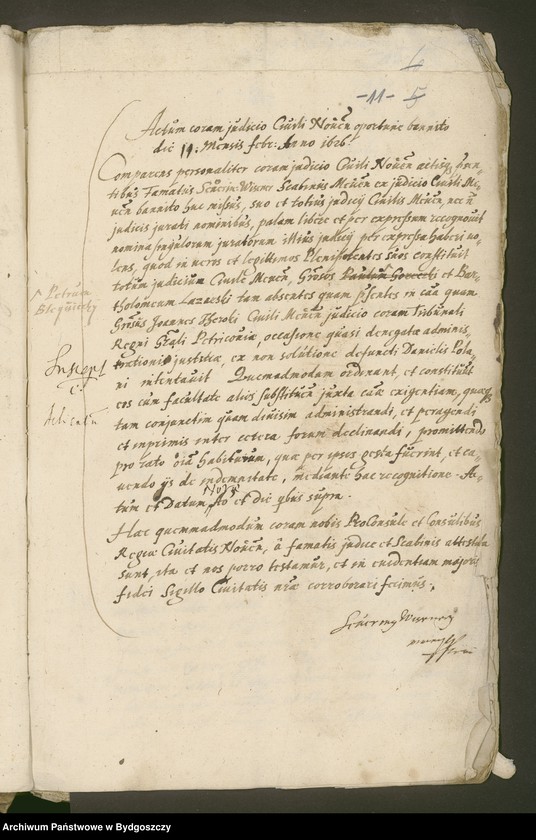 -11-
Actum coram judicio Ciuili Nouen oportune bannito
die 11: Mensis febr: Anno 1626.
Comparens personaliter coram judicio Ciuili Nouen actisq;
tibus famatus Wisure Scabinus Mcuen ex judicio Ciuili
bannito huc missus, suo et totius judicij Ciuilis Mcuen nec n
judicis jurati nominibus, palam libere et per expressum recognouit
nomina singulorum juratorum illius judicij per expressa haberi uo-
lens, quod in ueros et legittimos Plenipotentes suos constituit
totum judicium Ciuile Mcuen, Paulum et Bar-
tholomeum Lazarski tam absentes quam psentes in caa quam
Joannes Ciuili Mcuen judicio coram Tribunali
Regni Gnali Petricouiæ, occasione quasi denegatæ adminis,
trationis justitiæ, ex non solutione defuncti Danielis Pola,
ni intentauit. Quemadmodum ordinant, et constituit
eos cum facultate alios substituen juxta caæ exigentiam,
tam conjunctim quam diuisim administrandi, et peragendi
et inprimis inter cetera forum declinandi, promittendo
pro rato habiturum, quæ per ipsos gesta fuerint, et ca,
uendo de indemnitate, mediante hac recognitione. Ac,
tum et Datum Ao et die qbus supra.
Hæc quemmadmodum coram nobis Proconsule et Consulibus
Regiæ Ciuitatis Nouen, â famatis judice et Scabinis attestata
sunt, ita et nos porro testamur, et in euidentiam majoris
fidei Sigillo Ciuitatis nræ corroborari fecimus.
^ Petrum
Archiwum Państwowe w Bydgoszczy